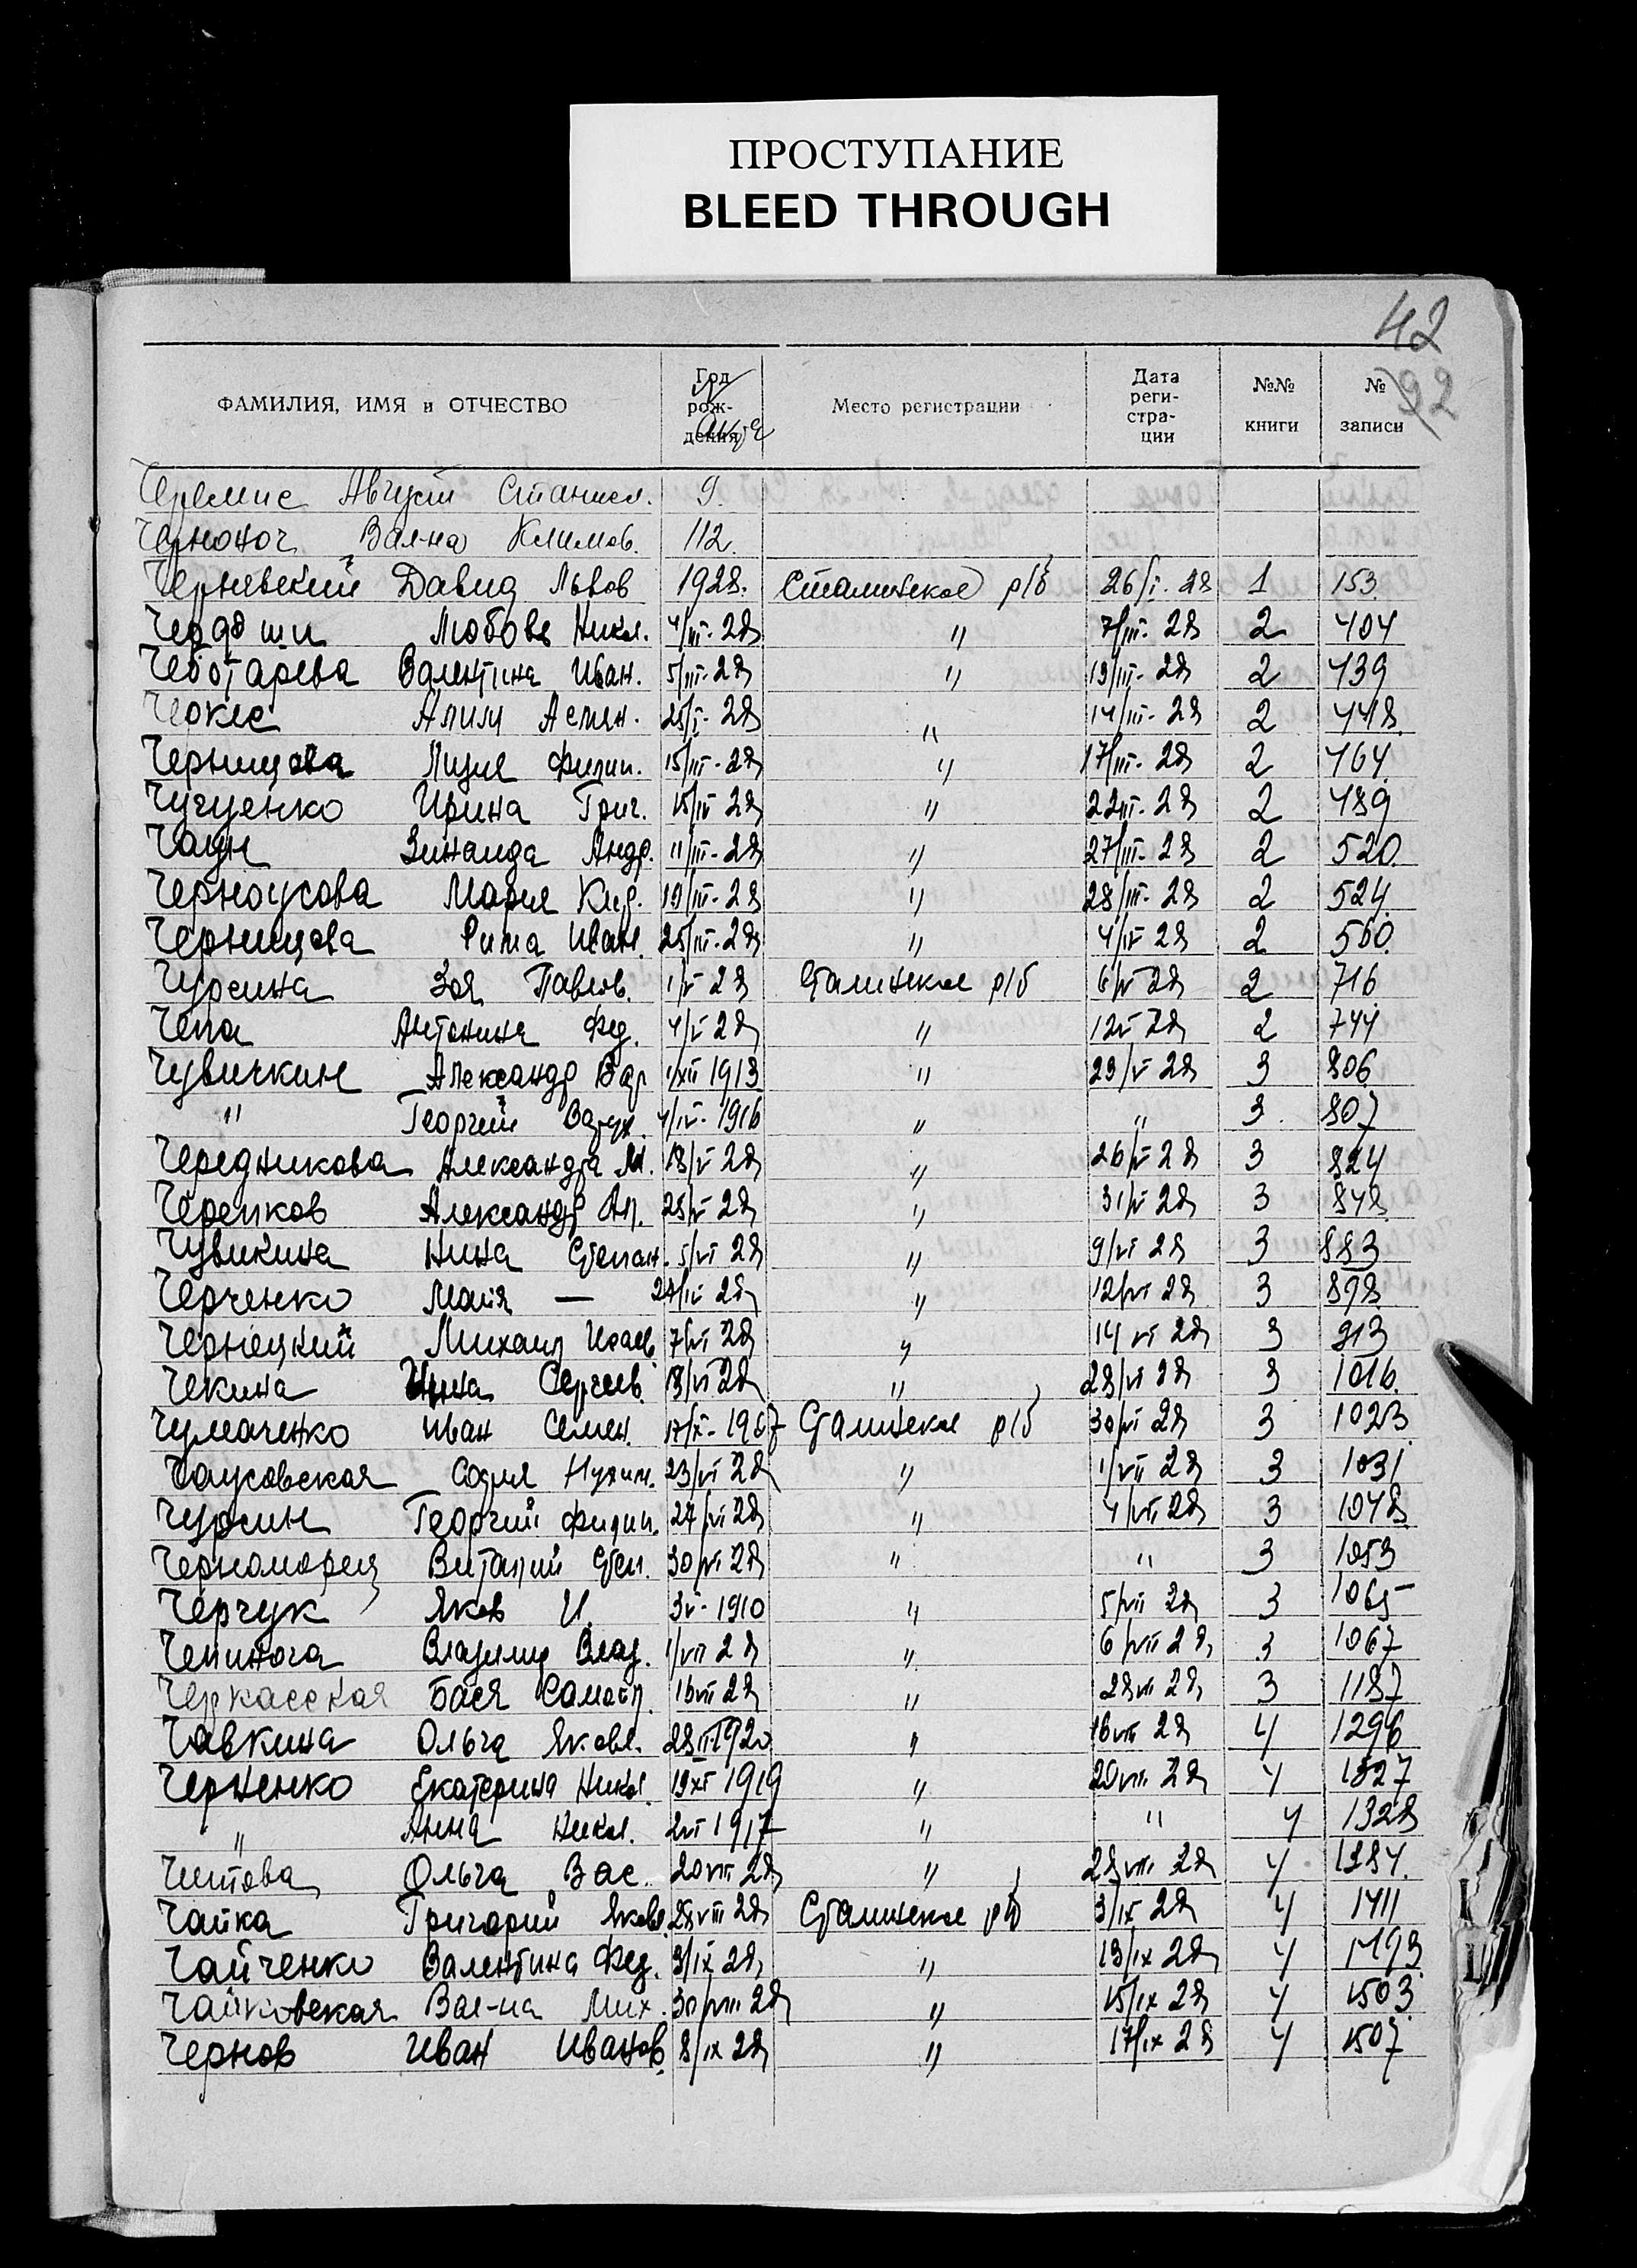 ПРОСТУПАНИЕ
BLEED THROUGH
42
92
ФАМИЛИЯ, ИМЯ и ОТЧЕСТВО Год рож- дения Место регистрации Дата реги- стра- ции №№ книги № записи
Черемис Август Станисл. 9.
Черноноч Вал-на Климов. 112.
Чернявский Давид Львов 1928. Сталинское р/б 26/I. 28 1 153
Любовь Никл. 4/III-28 " 7/III-28 2 404
Чеботарева Валентина Иван. 5/III-28 " 13/III-28 2 439
Алим 25/I-28 " 14/III-28 2 448
Чернищова Лидия Филип. 15/III-28 " 17/III-28 2 464
Ирина Григ. 28 " 22III-28 2 489
Зинаида Андр. 11/III-28 " 27/III-28 2 520
Черноусова Мария 19/III-28 " 28/III-28 2 524
Чернищова Рита Иван. 25/III-28 " 4/IV 28 2 560
Чурсина Зоя Павлов. 1/V 28 Сталинское р/б 6/V 28 2 716
Чепа Антонина Фед. 4/V 28 " 12V 28 2 744
Чувичкин Александр 1/XII 1913 " 23/V 28 3 806
" Георгий 4/IV-1916 " " 3 807
Чередникова Александра М. 18/V 28 " 26/V 28 3 824
Черепков Александр Ап. 28/V 28 " 31/V 28 3 848
Чувикина Нина Степан. 5/VI 28 " 9/VI 28 3 883
Черченко Майя — 28 " 12/VI 28 3 898
Чернецкий Михаил Исаев. 7/VI 28 " 14 VI 28 3 913
Чекина Нина Сергеев. 18/VI 28 " 28/VI 28 3 1016
Чумаченко Иван Семен. Сталинское р/б 30/VI 28 3 1023
Чаусовская София Нухим. 23/VI 28 " 1/VII 28 3 1031
Чурсин Георгий Филип. 27/VI 28 " 4/VII 28 3 1048
Черноморец Виталий Степ. 30/VI 28 " " 3 1053
Черчук Яков И. 3V-1910 " 5/VII 28 3 1065
Чепинога Владимир Влад. 1/VII 28 " 6/VII 28 3 1067
Черкасская Бася Самойл. 16VII 28 " 28VII 28 3 1187
Чавкина Ольга Яковл. 1920 " 16VIII 28 4 1296
Черненко Екатерина Никол. 19XI 1919 " 20VIII 28 4 1327
" Анна Никол. 2VI 1917 " " 4 1328
Читова Ольга Вас. 20VIII 28 " 28VIII 28 4 1384
Чайка Григорий Яковл. 28VIII 28 Сталинское р/б 3/IX 28 4 1411
Чайченко Валентина Фед. 9/IX 28 " 13/IX 28 4 1493
Чайковская Вал-на Мих. 30/VIII 28 " 15/IX 28 4 1503
Чернов Иван Иванов. 8/IX 28 " 17/IX 28 4 1507